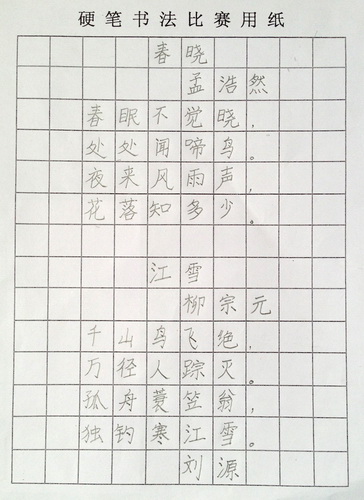 硬笔书法比赛用纸
春晓
孟浩然
春眠不觉晓，
处处闻啼鸟。
夜来风雨声，
花落知多少。
江雪
柳宗元
千山鸟飞绝，
万径人踪灭。
孤舟蓑笠翁，
独钓寒江雪。
刘源